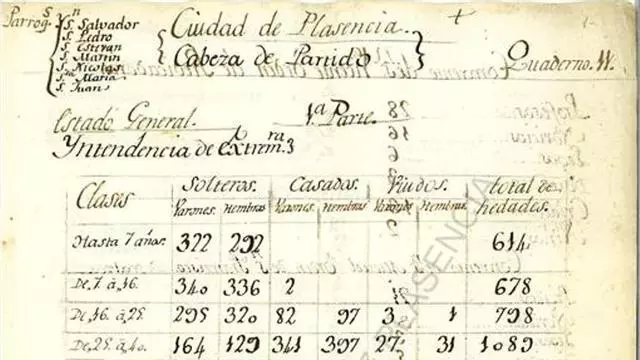 Parrog.s
Sn. Salvador
S. Pedro
S. Estevan
S. Martin
S. Nicolas
Sta Maria
S. Juan
Ciudad de Plasencia.
Cabeza de Partido
Quaderno. 11.
Estado General. 1.a Parte.
Yntendencia de Extrem.ra
Clases Solteros. Casados. Viudos. total de
hedades.
Varones. Hembras Varones. Hembras Varones Hembras
Hasta 7 años. 322 292 614
De 7. à 16. 340 336 2 678
De, 16 à, 25. 295 320 82 97 3 1 798
De, 25 à, 40. 164 129 341 397 27 31 1089
PLASENCIA